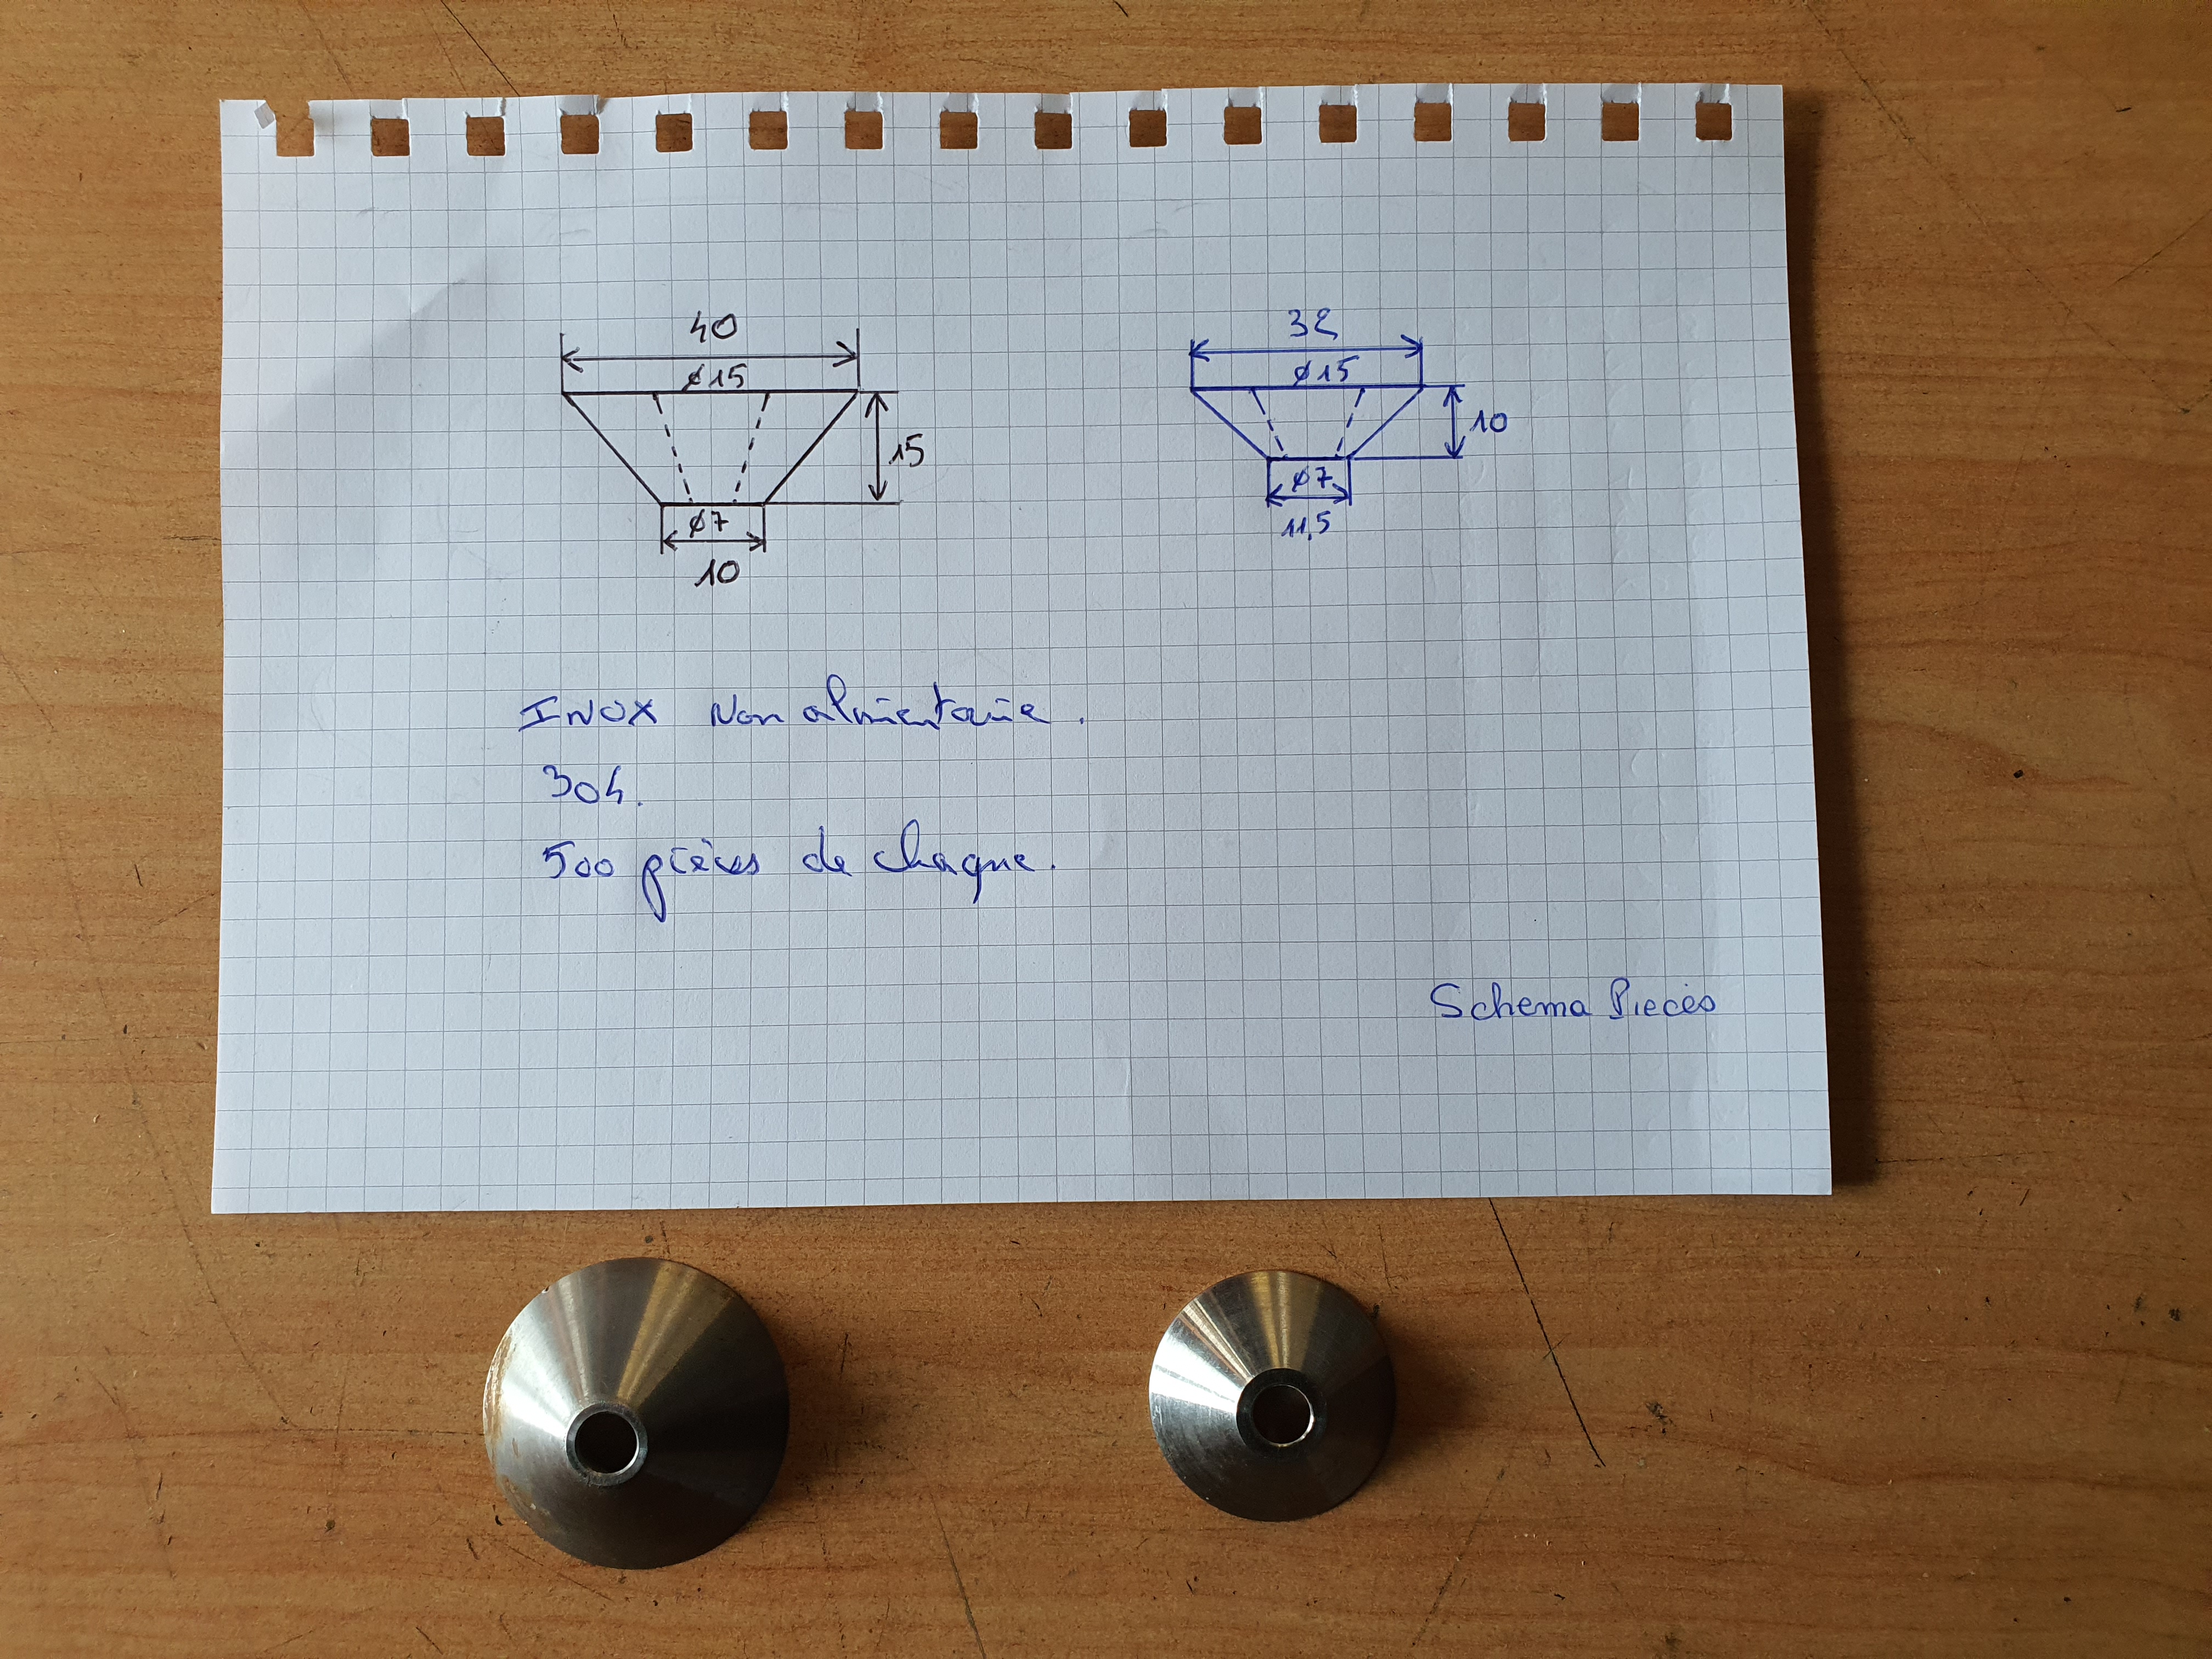 40
ø15
15
ø7
10
32
ø15
10
ø7
11,5
INOX Non alimentaire.
304.
500 pièces de chaque.
Schema Pieces